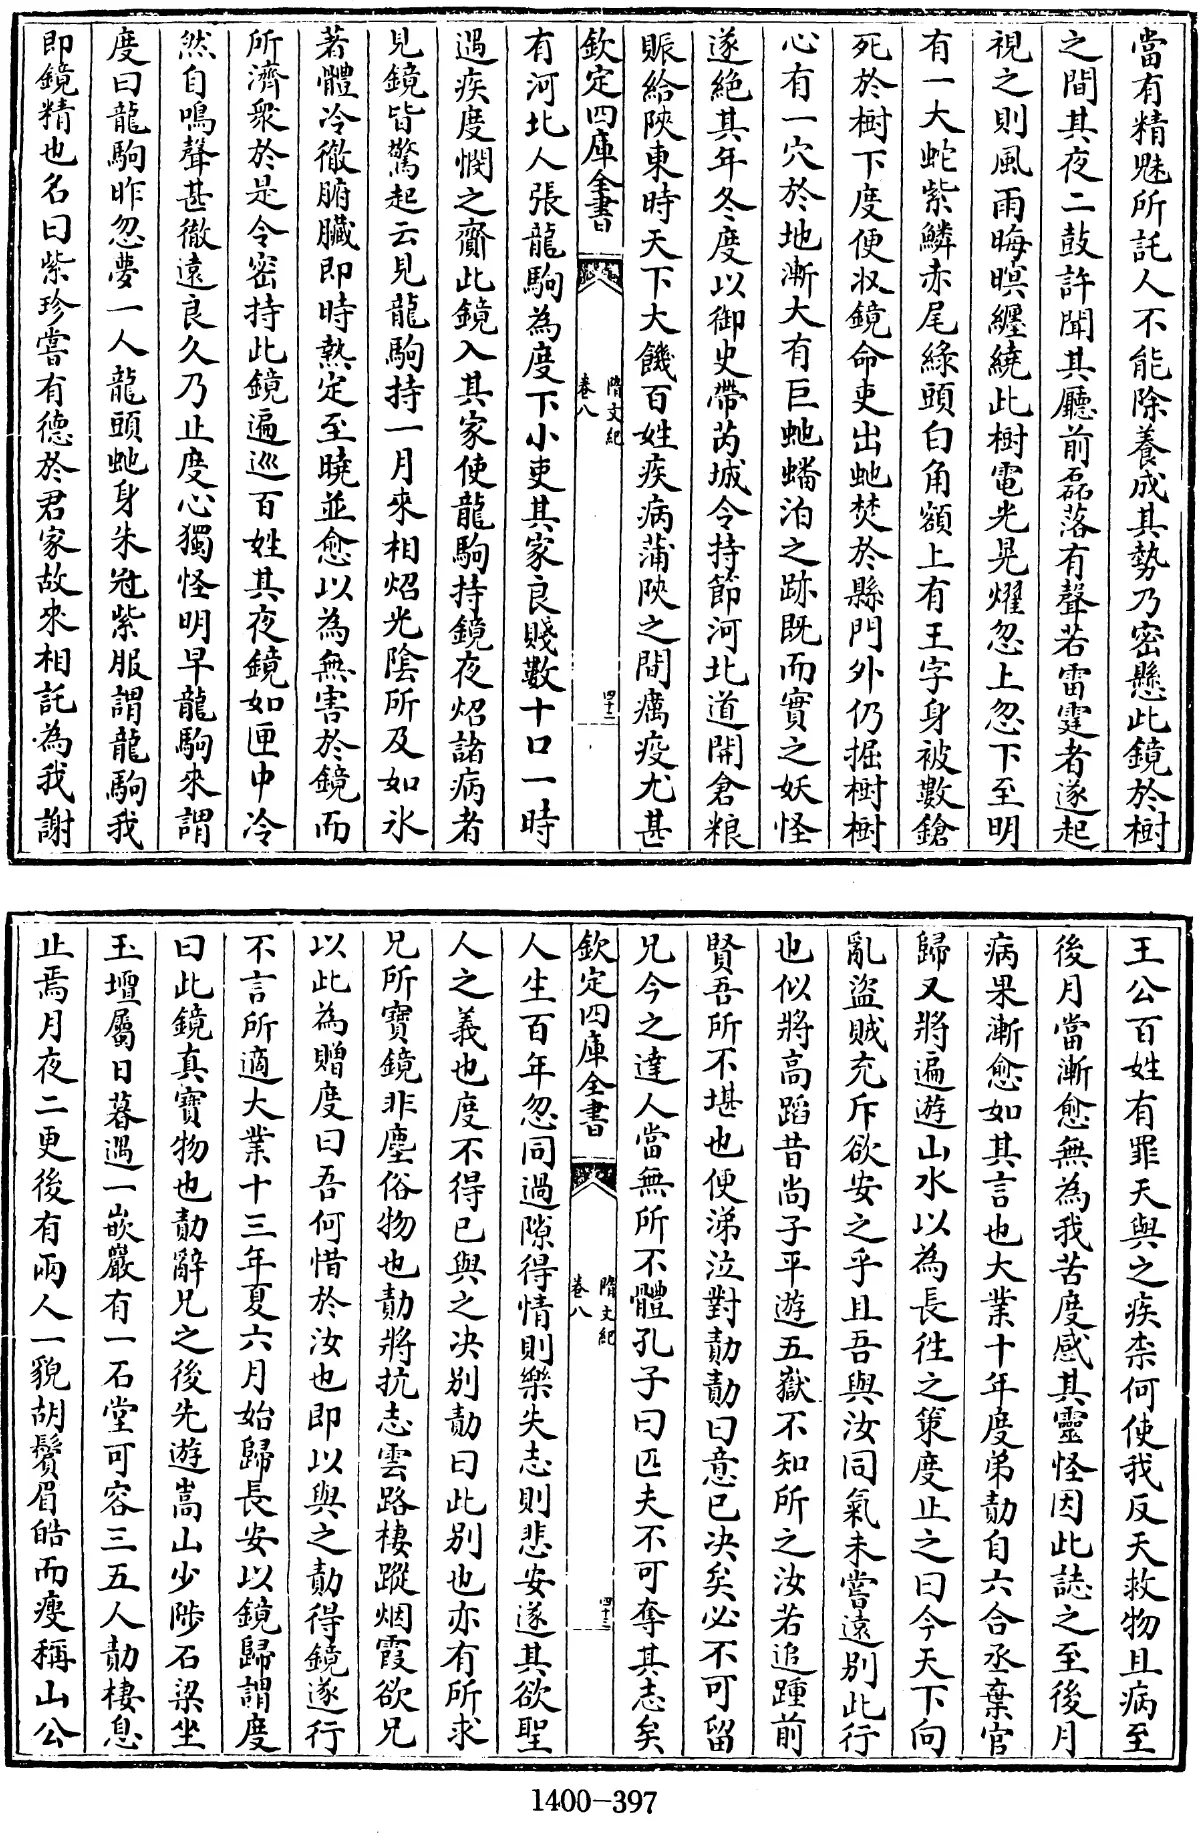 當有精魅所託人不能除養成其勢乃密懸此鏡於樹
之間其夜二鼓許聞其廳前磊落有聲若雷霆者遂起
視之則風雨晦暝纏繞此樹電光晃燿忽上忽下至明
有一大蛇紫鱗赤尾綠頭白角額上有王字身被數鎗
死於樹下度便收鏡命吏出虵焚於縣門外仍掘樹樹
心有一穴於地漸大有巨虵蟠泊之跡既而實之妖怪
遂絶其年冬度以御史帶芮城令持節河北道開倉粮
賑給陜東時天下大饑百姓疾病蒲陜之間癘疫尤甚
欽定四庫全書
隋文紀
卷八
四十二
有河北人張龍駒為度下小吏其家良賤數十口一時
遇疾度憫之齎此鏡入其家使龍駒持鏡夜炤諸病者
見鏡皆驚起云見龍駒持一月來相炤光陰所及如氷
著體冷徹腑臟即時熱定至曉並愈以為無害於鏡而
所濟衆於是令密持此鏡遍巡百姓其夜鏡如匣中冷
然自鳴聲甚徹遠良久乃止度心獨怪明早龍駒來謂
度曰龍駒昨忽夢一人龍頭虵身朱冠紫服謂龍駒我
即鏡精也名曰紫珍嘗有德於君家故來相託為我謝
王公百姓有罪天與之疾柰何使我反天救物且病至
後月當漸愈無為我苦度感其靈怪因此誌之至後月
病果漸愈如其言也大業十年度弟勣自六合丞棄官
歸又將遍遊山水以為長徃之策度止之曰今天下向
亂盜賊充斥欲安之乎且吾與汝同氣未嘗遠別此行
也似將高蹈昔尚子平遊五嶽不知所之汝若追踵前
賢吾所不堪也便涕泣對勣勣曰意已决矣必不可留
兄今之達人當無所不體孔子曰匹夫不可奪其志矣
欽定四庫全書
隋文紀
卷八
四十三
人生百年忽同過隙得情則樂失志則悲安遂其欲聖
人之義也度不得已與之决別勣曰此別也亦有所求
兄所寶鏡非塵俗物也勣將抗志雲路棲蹤烟霞欲兄
以此為贈度曰吾何惜於汝也即以與之勣得鏡遂行
不言所適大業十三年夏六月始歸長安以鏡歸謂度
曰此鏡真寶物也勣辭兄之後先遊嵩山少陟石梁坐
玉壇屬日暮遇一嵌巖有一石堂可容三五人勣棲息
止焉月夜二更後有兩人一貌胡鬢眉皓而瘦稱山公
1400-397